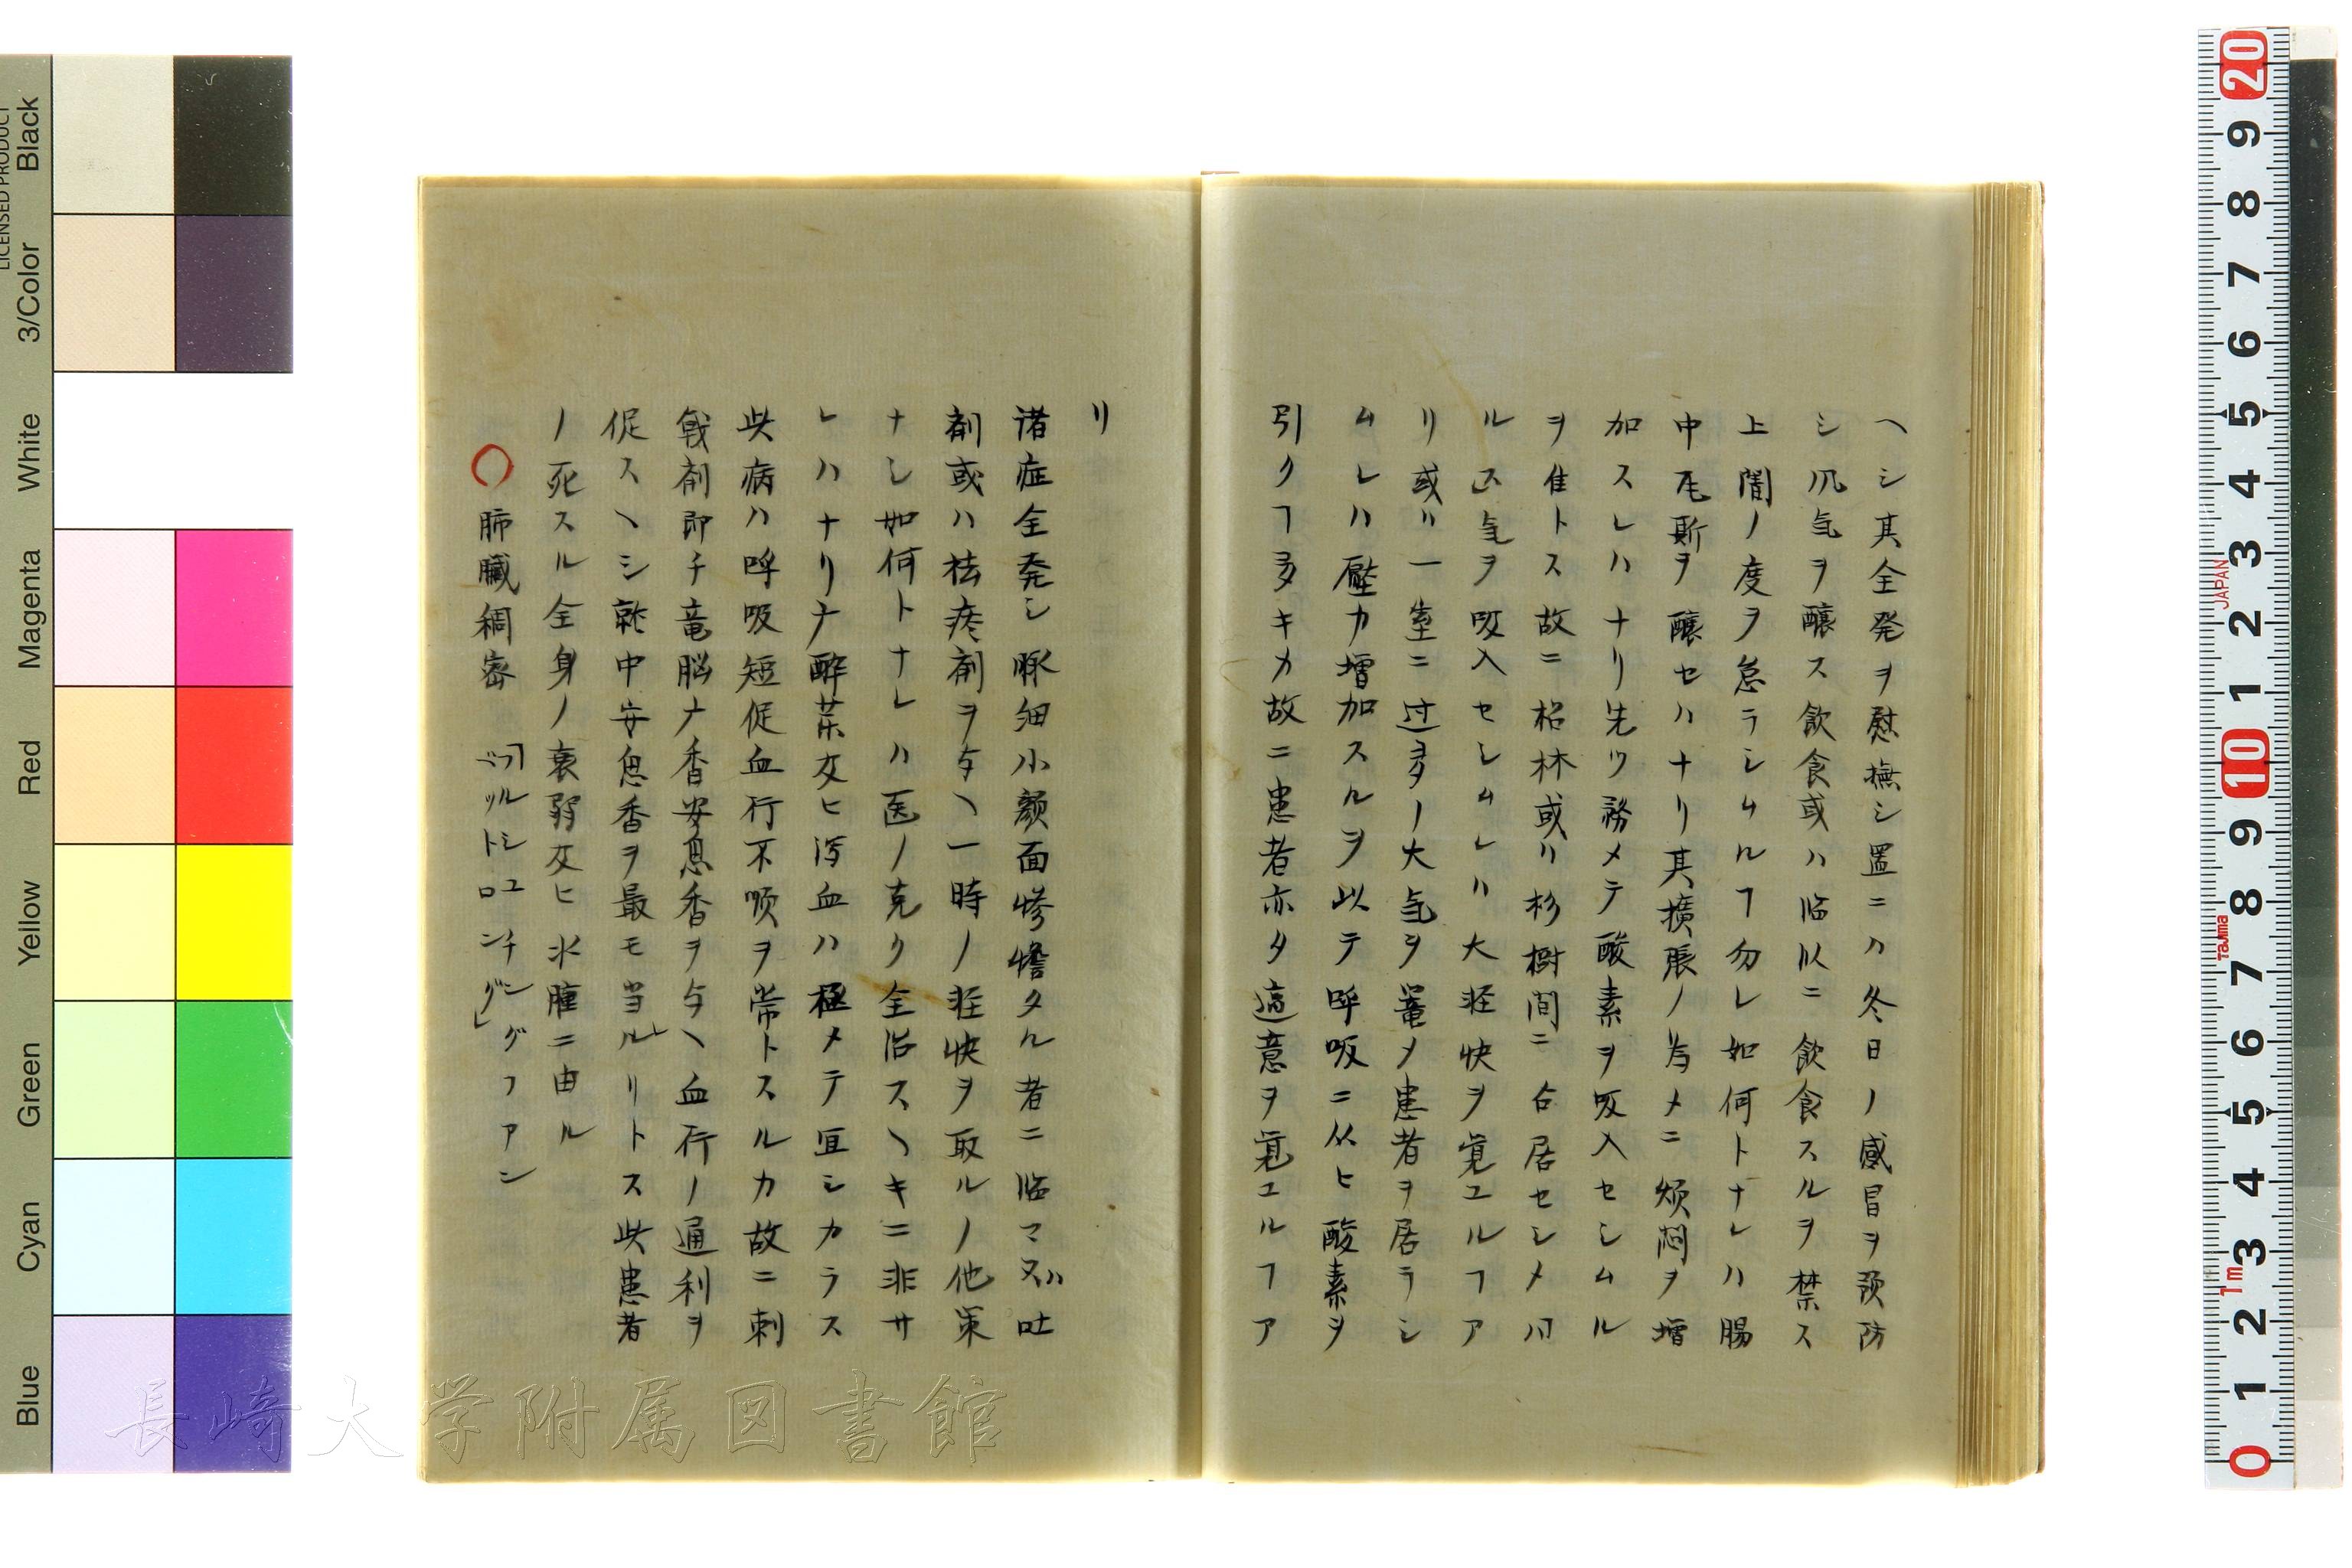 ヘシ其全発ヲ慰撫シ置ニハ冬日ノ感冒ヲ預防
シ爪気ヲ醸ス飲食或ハ臨臥ニ飲食スルヲ禁ス
上闇ノ度ヲ怠ラシムルヿ勿レ如何トナレハ腸
中瓦斯ヲ醸セハナリ其擴張ノ為メニ煩悶ヲ増
加スレハナリ先ツ務メテ酸素ヲ吸入セシムル
ヲ佳トス故ニ柗林或ハ杉樹間ニ合居セシメ
ル气ヲ吸入セシムレハ大軽快ヲ覚ユルヿア
リ或ハ一室ニ过多ノ大気ヲ篭メ患者ヲ居ラシ
ムレハ壓力増加スルヲ以テ呼吸ニ从ヒ酸素ヲ
引クヿ多キカ故ニ患者亦タ適意ヲ覚ユルヿア
リ
諸症全発シ脉細小顔面惨憺タル者ニ臨マハ吐
剤或ハ袪痰剤ヲ与ヘ一時ノ軽快ヲ取ルノ他策
ナシ如何トナレハ医ノ克ク全治スヘキニ非サ
レハナリナ酔薬及ヒ瀉血ハ極メテ冝シカラス
此病ハ呼吸短促血行不順ヲ常トスルカ故ニ刺
戟剤即チ竜脳ナ香安息香ヲ与ヘ血行ノ通利ヲ
促スヘシ就中安息香ヲ最モ当ルリトス此患者
ノ死スル全身ノ衰弱及ヒ水腫ニ由ル
○肺臓稠密
「フルシユチングファン
ベットロング」
20
9
8
7
6
5
4
3
2
1
10
9
8
7
6
5
4
3
2
1
0
JAPAN
Tajima
1m
LICENSED PRODUCT
Black
3/Color
White
Magenta
Red
Yellow
Green
Cyan
Blue
長崎大学附属図書館